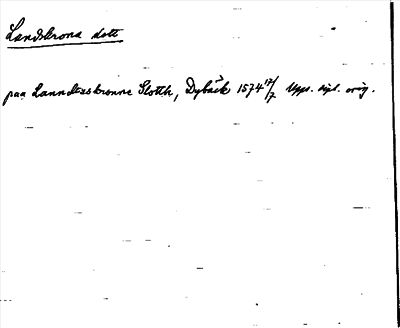 Landskrona slott
paa Lanndzskronne Slotth, Dybäck 1574 17/7 Upps. dipl. orig.